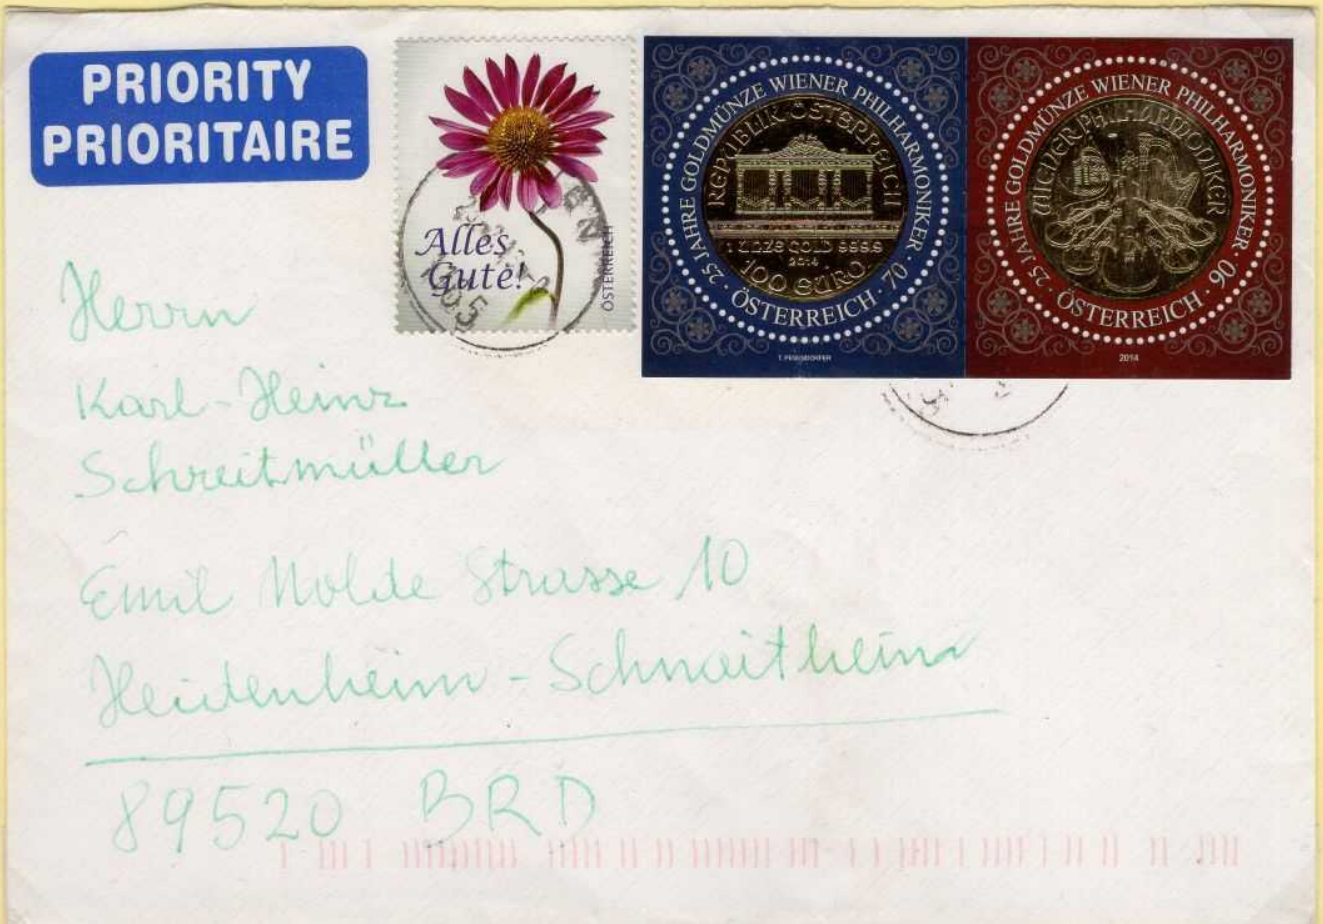 PRIORITY
PRIORITAIRE
Alles
Gute!
ÖSTERREICH
25 JAHRE GOLDMÜNZE WIENER PHILHARMONIKER · 70 · ÖSTERREICH ·
REPUBLIK ÖSTERREICH
1 UNZE GOLD 999.9
2014
100 EURO
25 JAHRE GOLDMÜNZE WIENER PHILHARMONIKER · 90 · ÖSTERREICH ·
WIENER PHILHARMONIKER
2014
Herrn
Karl-Heinz
Schreitmüller
Emil Nolde Strasse 10
Heidenheim-Schnaitheim
89520 BRD